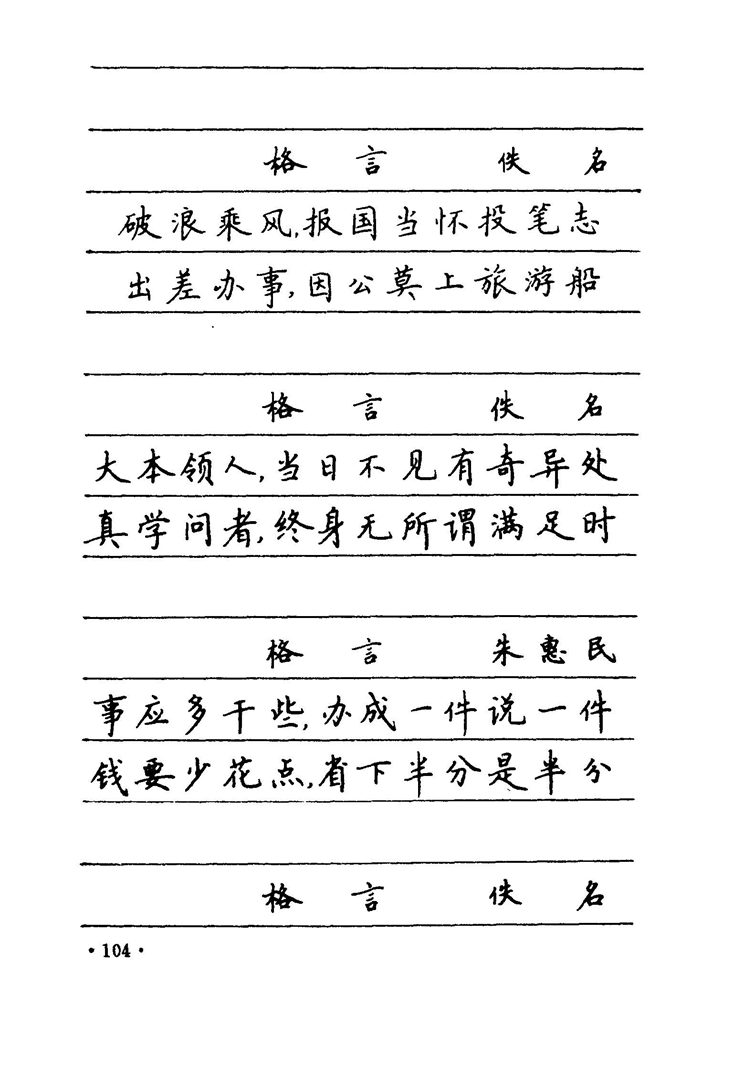 格言 佚名
破浪乘风,报国当怀投笔志
出差办事,因公莫上旅游船
格言 佚名
大本领人,当日不见有奇异处
真学问者,终身无所谓满足时
格言 朱惠民
事应多干些,办成一件说一件
钱要少花点,省下半分是半分
格言 佚名
·104·